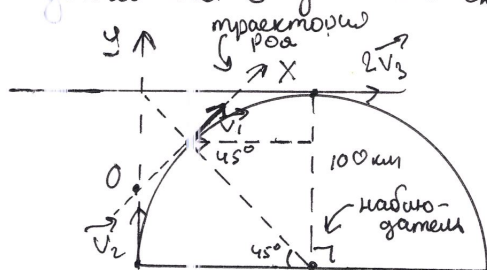 траектория
роя
У
X
2V₃
V₁
45°
100км
О
наблю-
датель
V₂
45°